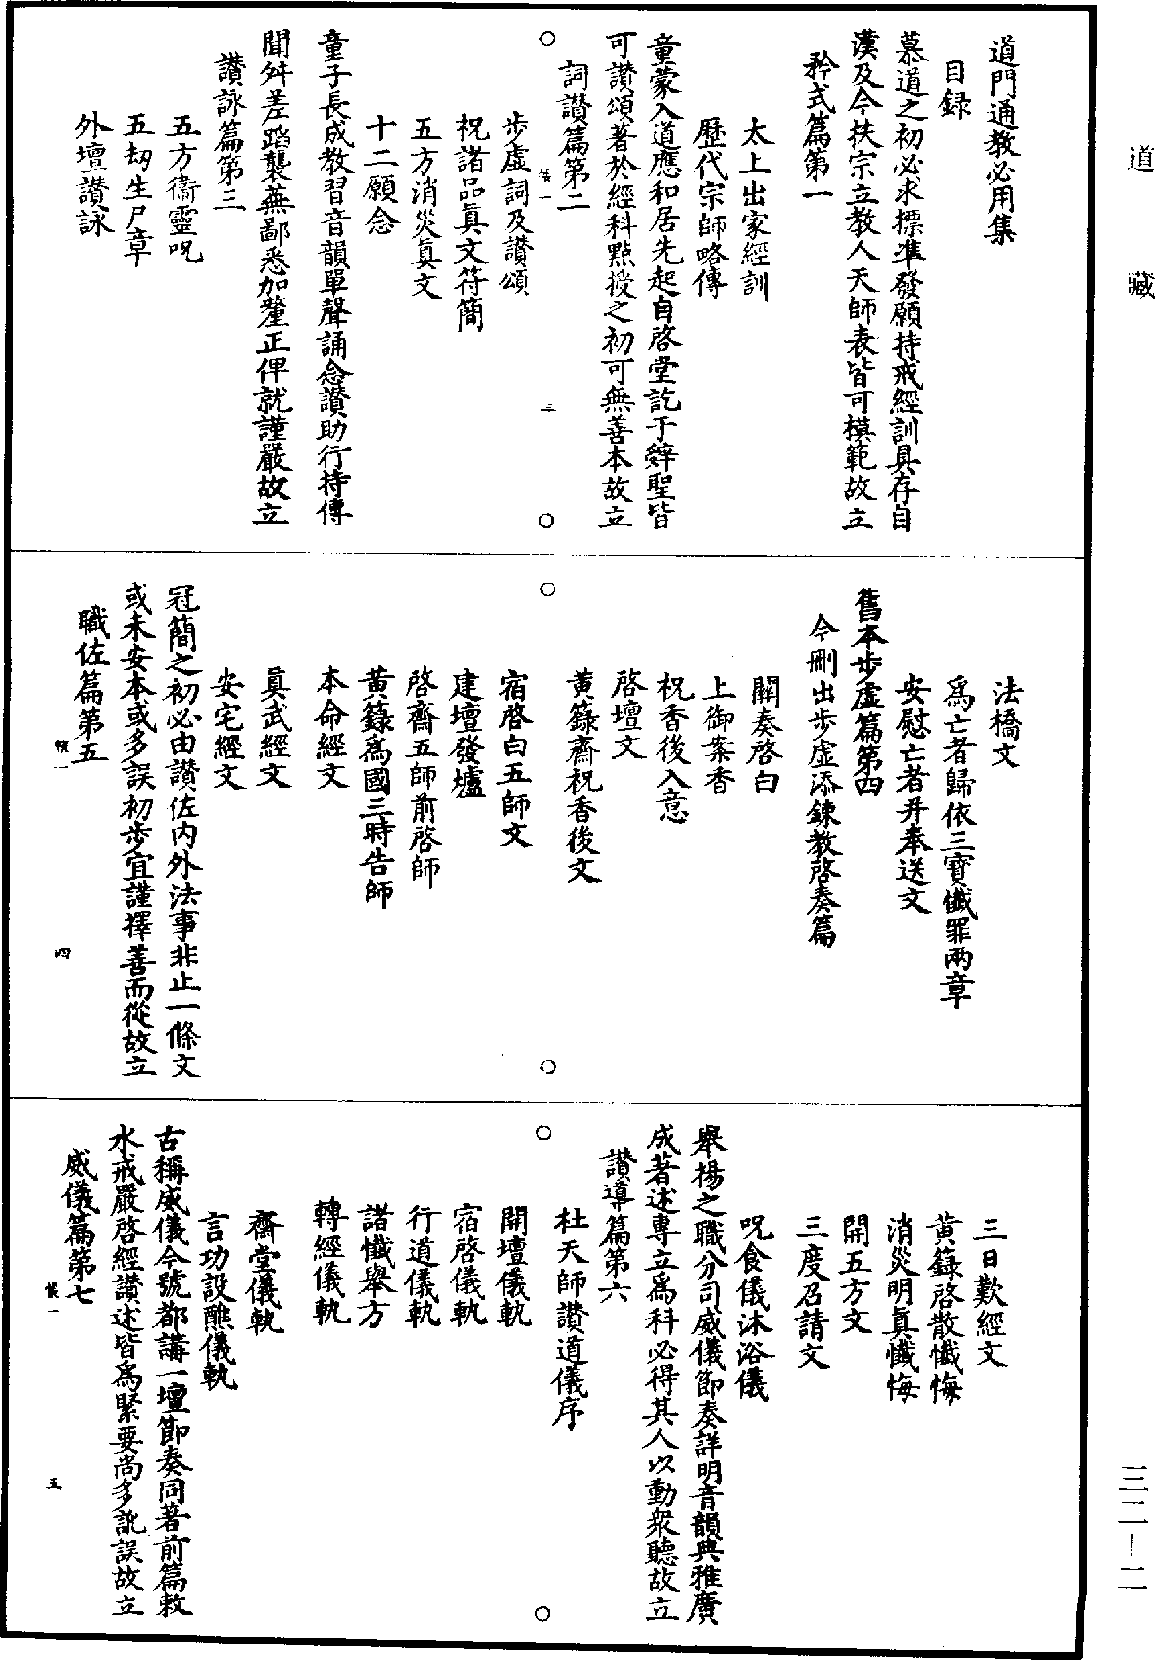 道門通教必用集
目録
慕道之初必求摽準發願持戒經訓具存自
漢及今扶宗立教人天師表皆可模範故立
矜式篇第一
太上出家經訓
歷代宗師略傳
童蒙入道應和居先起自啓堂訖于辤聖皆
可讃頌著於經科點授之初可無善本故立
詞讃篇第二
三
步虛詞及讃頌
祝諸品眞文符簡
五方消災眞文
十二願念
童子長成教習音韻單聲誦念讃助行持傳
聞舛差蹈襲蕪鄙悉加釐正俾就謹嚴故立
讃詠篇第三
五方衞靈呪
五劫生尸章
外壇讃詠
法橋文
爲亡者歸依三寶懺罪兩章
安慰亡者并奉送文
舊本步虛篇第四
今刪出步虛添鍊教啓奏篇
關奏啓白
上御案香
祝香後入意
啓壇文
黄籙齋祝香後文
宿啓白五師文
建壇發爐
啓齋五師前啓師
黄籙爲國三時告師
本命經文
眞武經文
安宅經文
冠簡之初必由讃佐内外法事非止一條文
或未安本或多誤初步宜謹擇善而從故立
職佐篇第五
四
三日歎經文
黄籙啓散懺悔
消災明眞懺悔
開五方文
三度召請文
呪食儀沐浴儀
舉揚之職分司威儀節奏詳明音韻典雅廣
成著述專立爲科必得其人以動衆聽故立
讃導篇第六
杜天師讃道儀序
開壇儀軌
宿啓儀軌
行道儀軌
諸懺舉方
轉經儀軌
齋堂儀軌
言功設醮儀軌
古稱威儀今號都講一壇節奏同著前篇敕
水戒嚴啓經讃述皆爲緊要尚多訛誤故立
威儀篇第七
五
道藏
三二—二